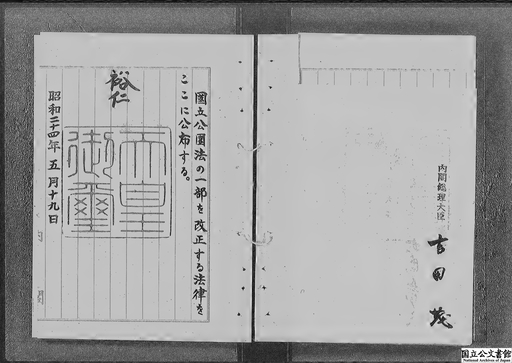 内閣総理大臣
吉田茂
國立公園法の一部を改正する法律を
ここに公布する。
裕仁
天皇
御璽
昭和二十四年五月十九日
国立公文書館
National Archives of Japan